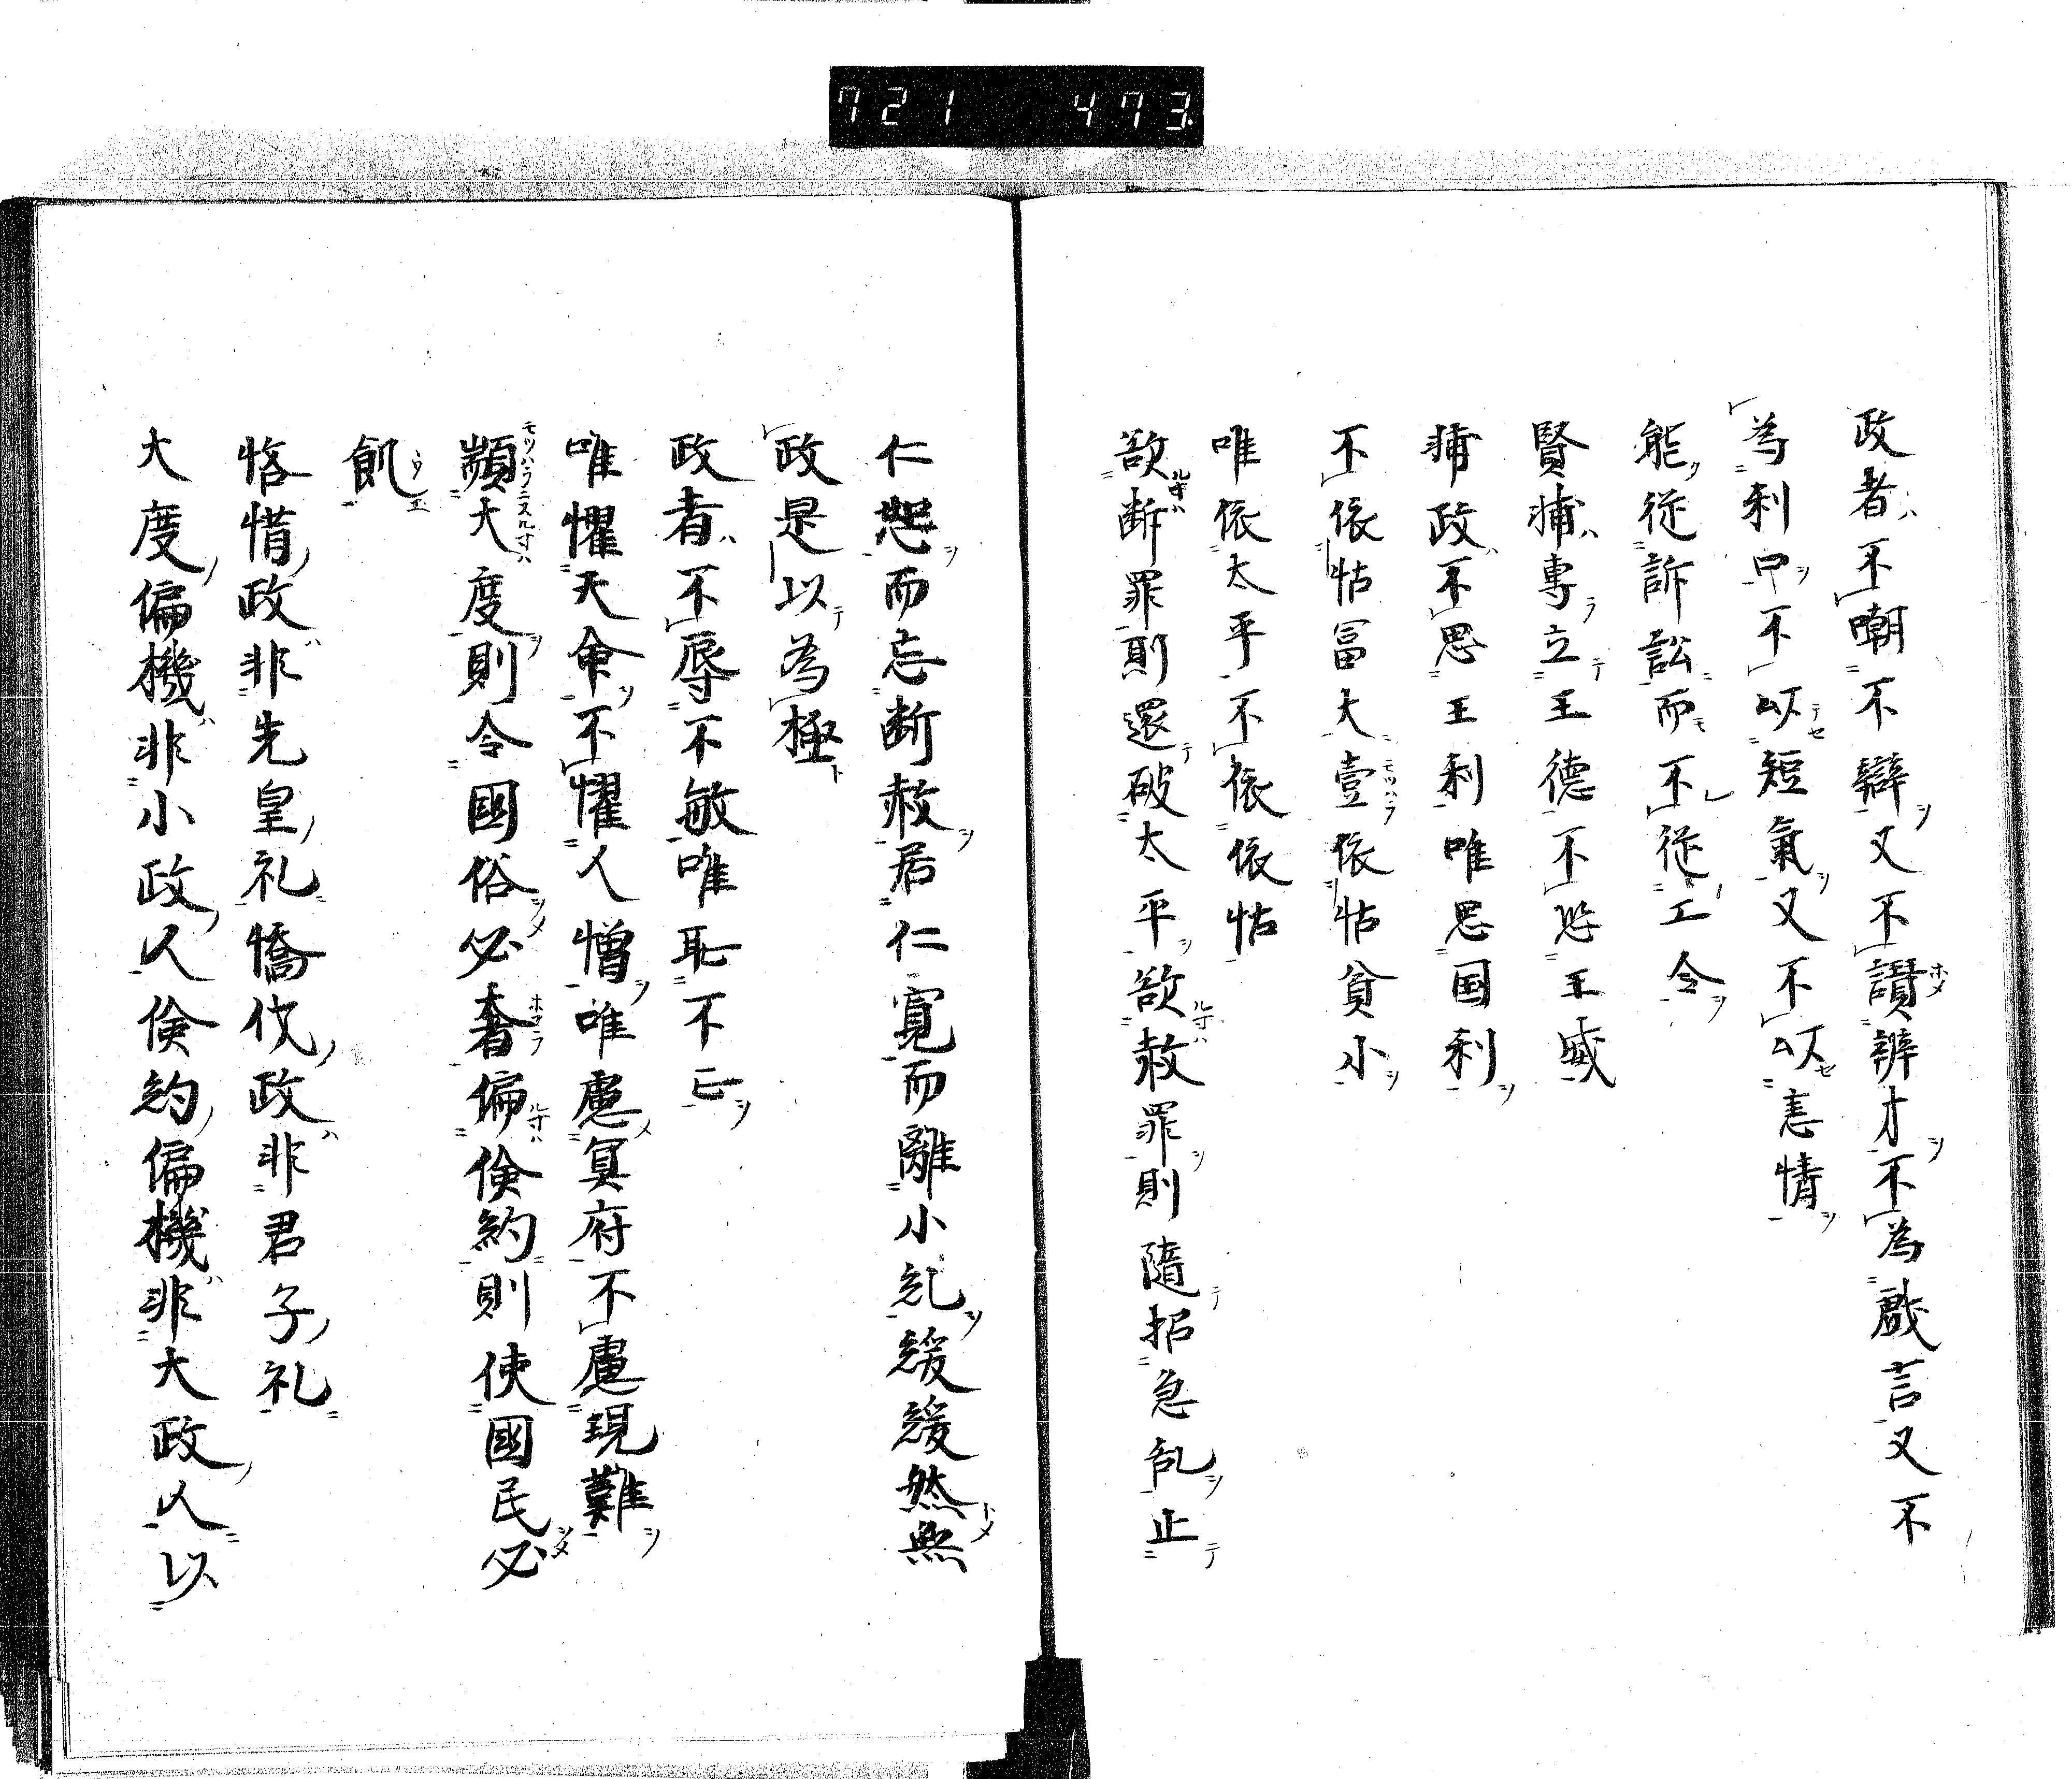 721 473
政者不嘲不辯又不讃辨才不為戯言又不
為利口不以短氣又不以恚情
能從訴訟而不從工令
賢捕專立王德不恐王威
捕政不思王利唯思国利
不依怙冨大壹依怙貧小
唯依太平不依依怙
欲断罪則還破太平欲赦罪則隨招急乱止
仁恕而忘断赦居仁寛而離小乱緩緩然無
政是以為極
政者不辱不敏唯恥不正
唯懼天命不懼人憎唯慮冥府不慮現難
顓大度則令國俗必奢偏倹約則使國民必
飢
悋惜政非先皇礼憍伐政非君子礼
大度偏機非小政人倹約偏機非大政人以